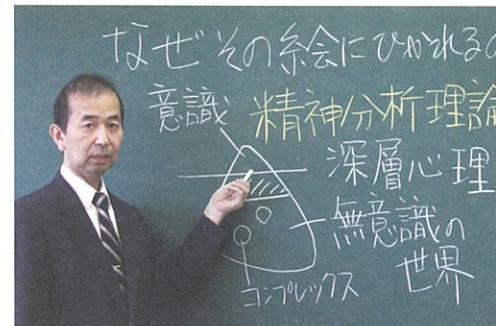 なぜその絵にひかれるの
意識
精神分析理論
深層心理
無意識の
世界
コンプレックス